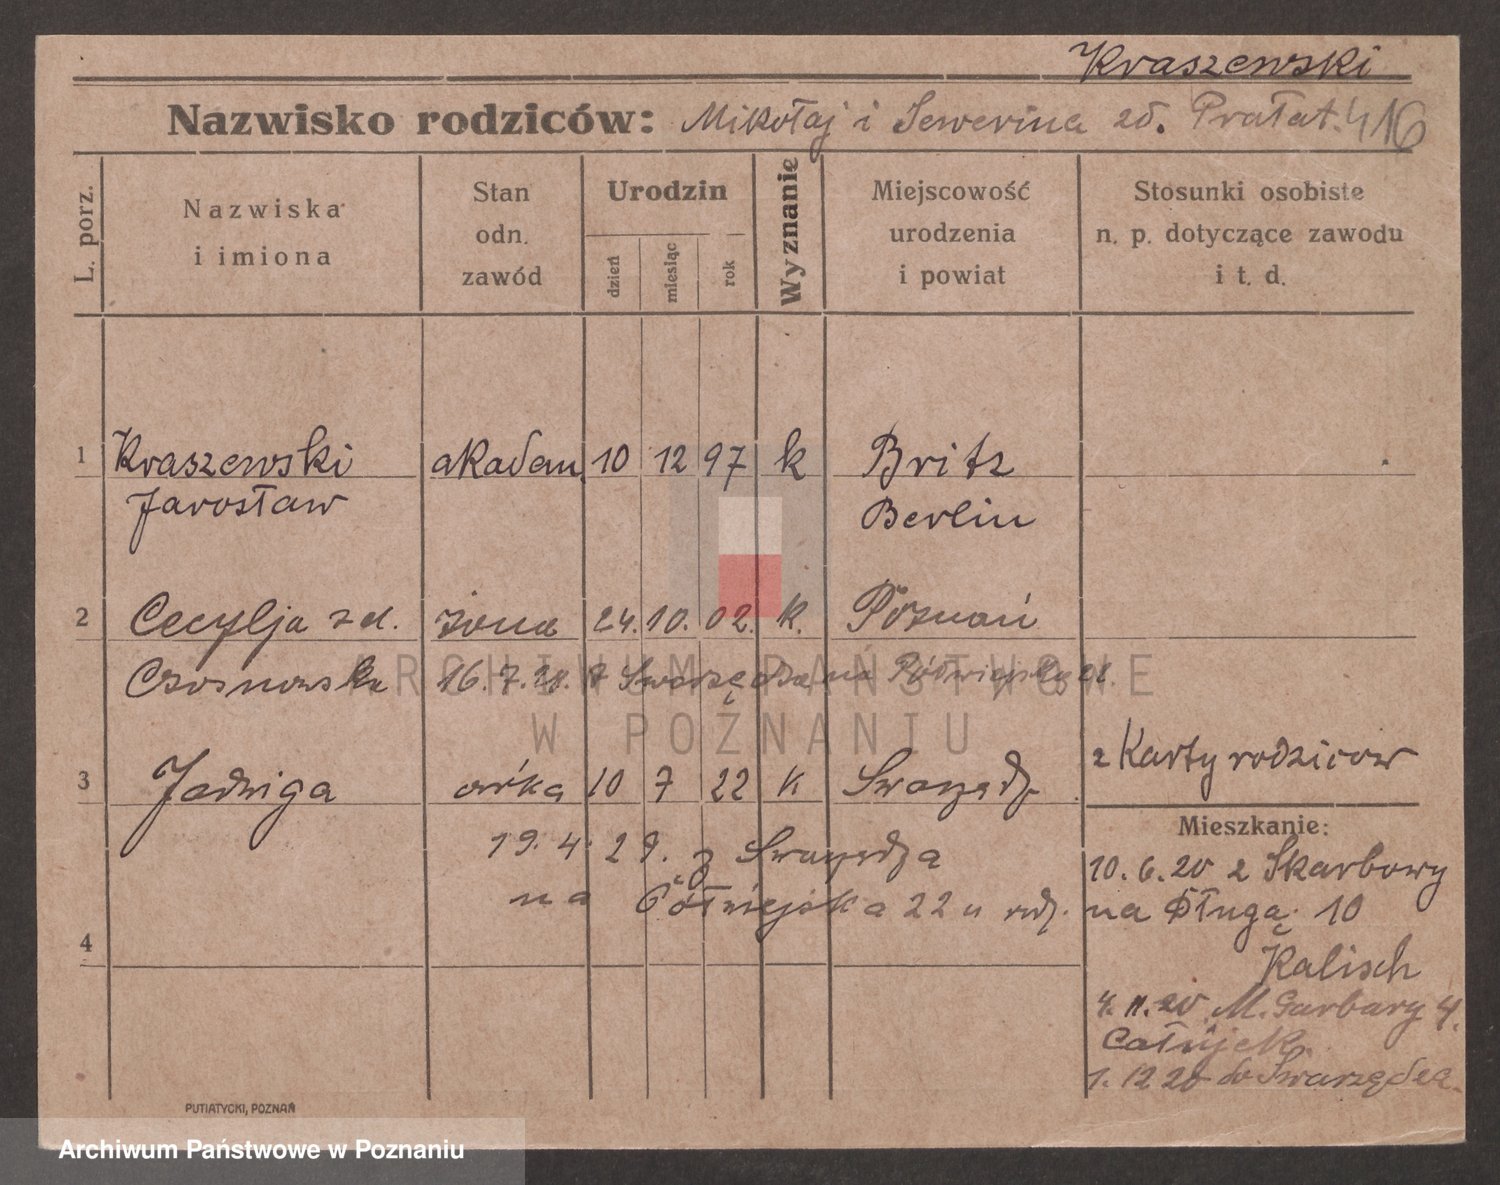 Kraszewski
Nazwisko rodziców: Mikołaj i Sewerina zd. Prałat. 416
L. porz.
Nazwiska i imiona
Stan odn. zawód
Urodzin
dzień miesiąc rok
Wyznanie
Miejscowość urodzenia i powiat
Stosunki osobiste n. p. dotyczące zawodu i t. d.
1 Kraszewski akadem. 10 12 97 k Britz
Jarosław Berlin
2 Cecylja zd. żona 24. 10. 02. k. Poznań
Czosnowska 16.7.21. z Swarzędza na Półwiejską 22.
3 Jadwiga córka 10 7 22 k Swarzędz
19. 4. 29. z Swarzędza
na Półwiejska 22 u rodz.
4
z Karty rodziców
Mieszkanie:
10. 6. 20 z Skarbowy
na Długą 10
Kalisch
4. 11. 20 M. Garbary 4.
1. 12 20 do Swarzędza
PUTIATYCKI, POZNAŃ
ARCHIWUM PAŃSTWOWE
W POZNANIU
Archiwum Państwowe w Poznaniu